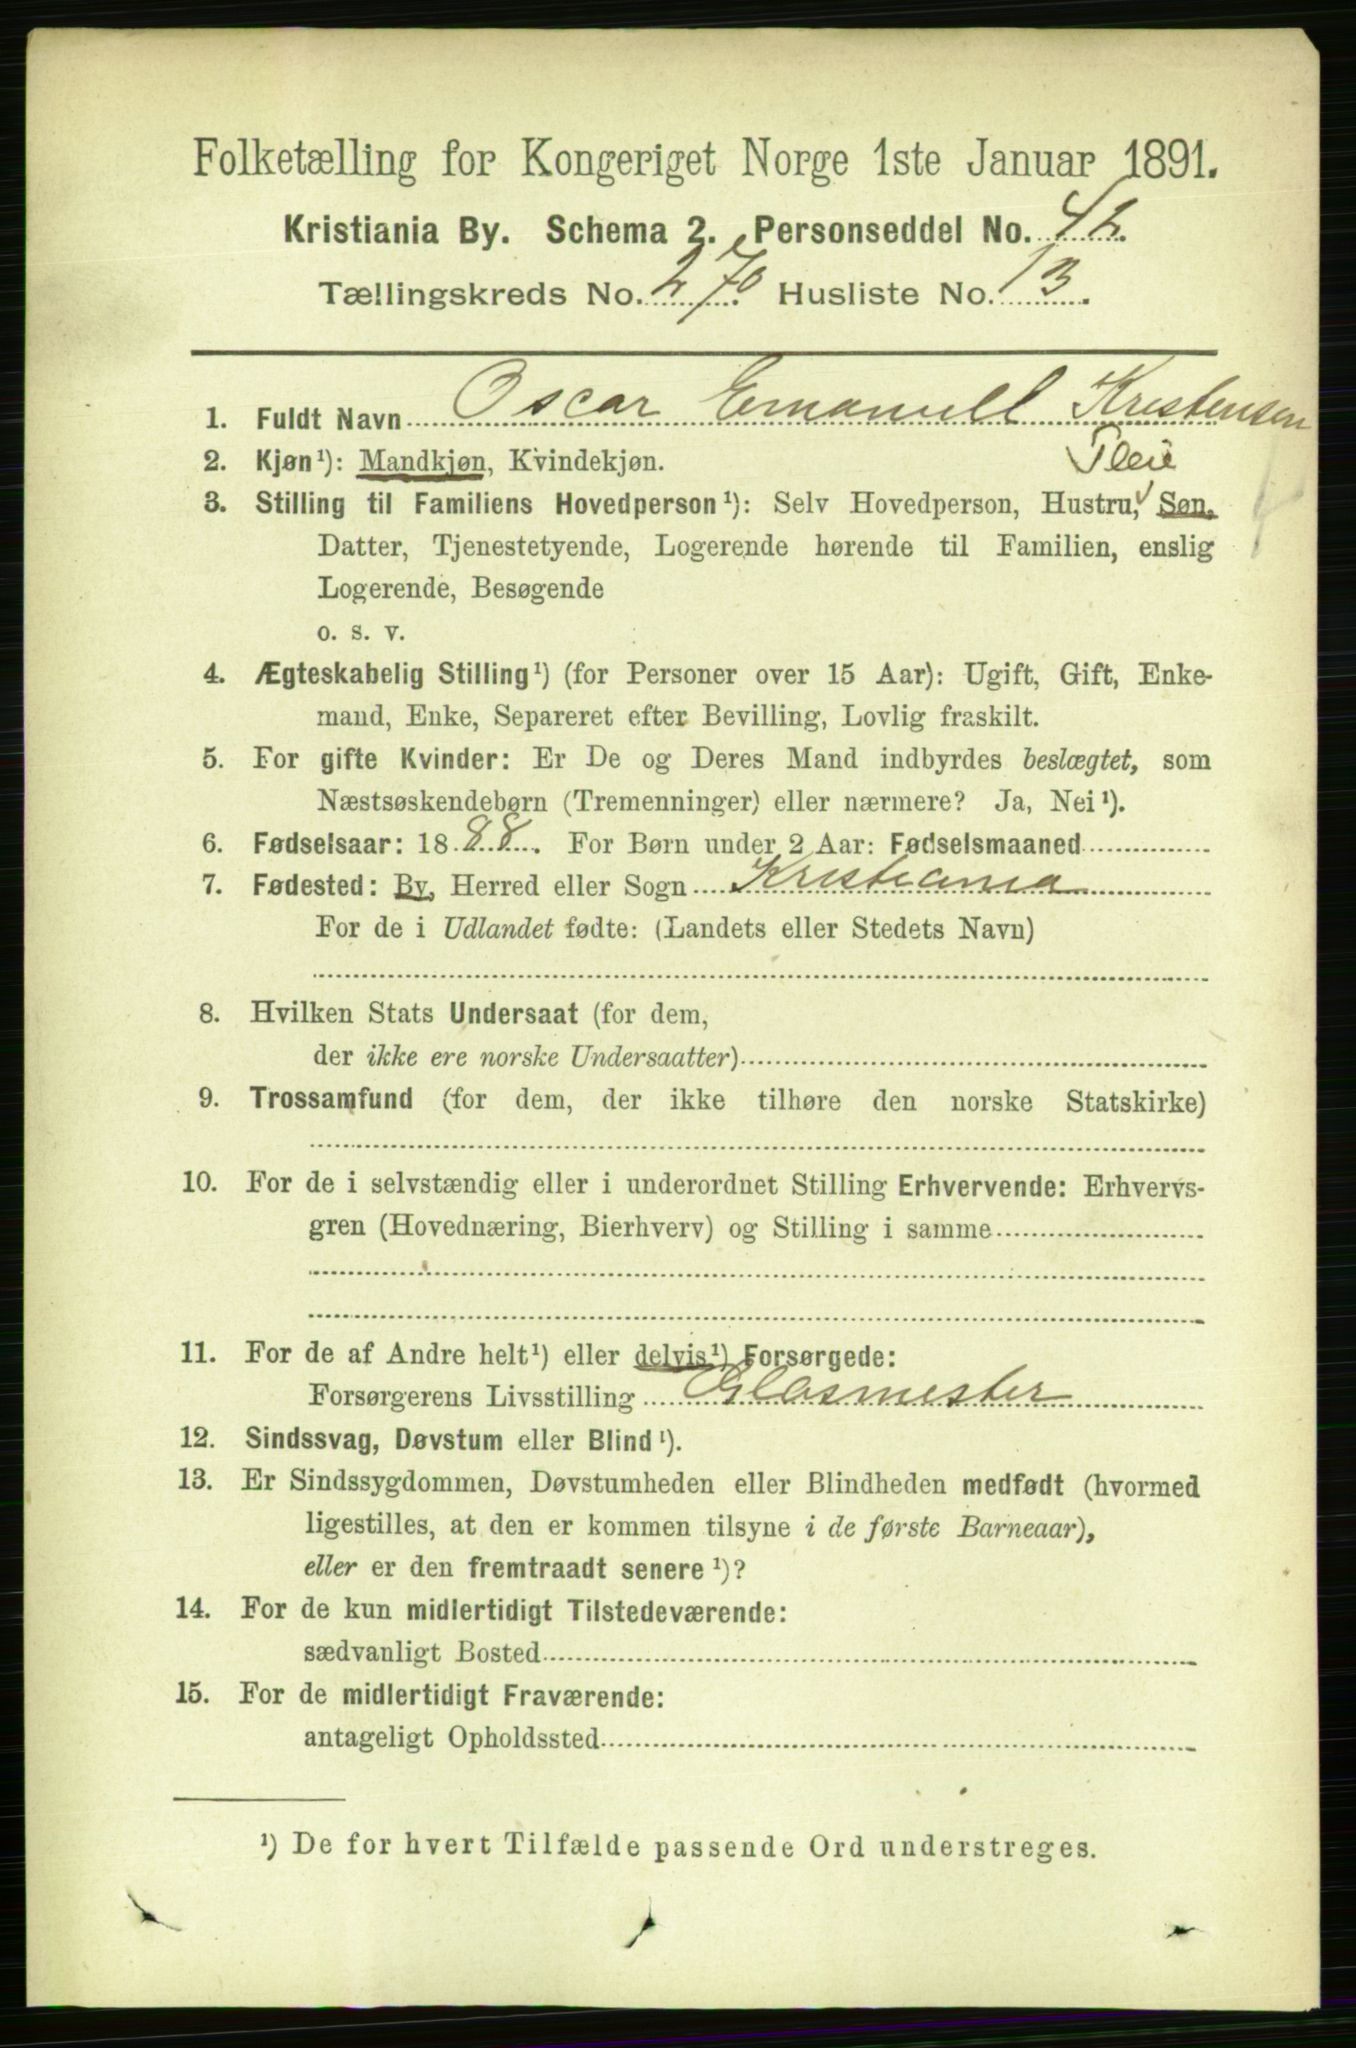 Folketælling for Kongeriget Norge 1ste Januar 1891.
Kristiania By. Schema 2. Personseddel No. 42.
Tællingskreds No. 270 Husliste No. 13.
1. Fuldt Navn Oscar Emanuell Kristensen
2. Kjøn¹): Mandkjøn, Kvindekjøn.
Pleie
3. Stilling til Familiens Hovedperson¹): Selv Hovedperson, Hustru, Søn,
Datter, Tjenestetyende, Logerende hørende til Familien, enslig
Logerende, Besøgende
o. s. v.
4. Ægteskabelig Stilling¹) (for Personer over 15 Aar): Ugift, Gift, Enke-
mand, Enke, Separeret efter Bevilling, Lovlig fraskilt.
5. For gifte Kvinder: Er De og Deres Mand indbyrdes beslægtet, som
Næstsøskendebørn (Tremenninger) eller nærmere? Ja, Nei¹).
6. Fødselsaar: 1888. For Børn under 2 Aar: Fødselsmaaned
7. Fødested: By, Herred eller Sogn Kristiania
For de i Udlandet fødte: (Landets eller Stedets Navn)
8. Hvilken Stats Undersaat (for dem,
der ikke ere norske Undersaatter)
9. Trossamfund (for dem, der ikke tilhøre den norske Statskirke)
10. For de i selvstændig eller i underordnet Stilling Erhvervende: Erhvervs-
gren (Hovednæring, Bierhverv) og Stilling i samme
11. For de af Andre helt¹) eller delvis¹) Forsørgede:
Forsørgerens Livsstilling Glasmester
12. Sindssvag, Døvstum eller Blind¹).
13. Er Sindssygdommen, Døvstumheden eller Blindheden medfødt (hvormed
ligestilles, at den er kommen tilsyne i de første Barneaar),
eller er den fremtraadt senere¹)?
14. For de kun midlertidigt Tilstedeværende:
sædvanligt Bosted
15. For de midlertidigt Fraværende:
antageligt Opholdssted
¹) De for hvert Tilfælde passende Ord understreges.